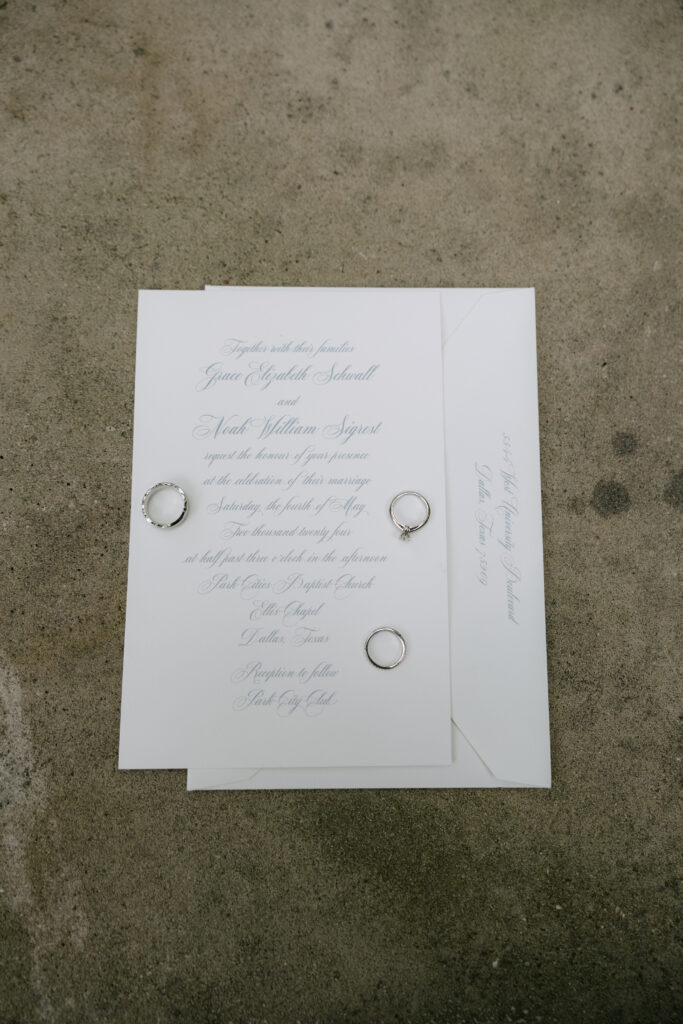 Together with their families
Grace Elizabeth Schwall
and
Noah William Sigrest
request the honour of your presence
at the celebration of their marriage
Saturday, the fourth of May
Two thousand twenty four
at half past three o'clock in the afternoon
Park Cities Baptist Church
Ellis Chapel
Dallas, Texas
Reception to follow
Park City Club
West University Boulevard
Dallas, Texas